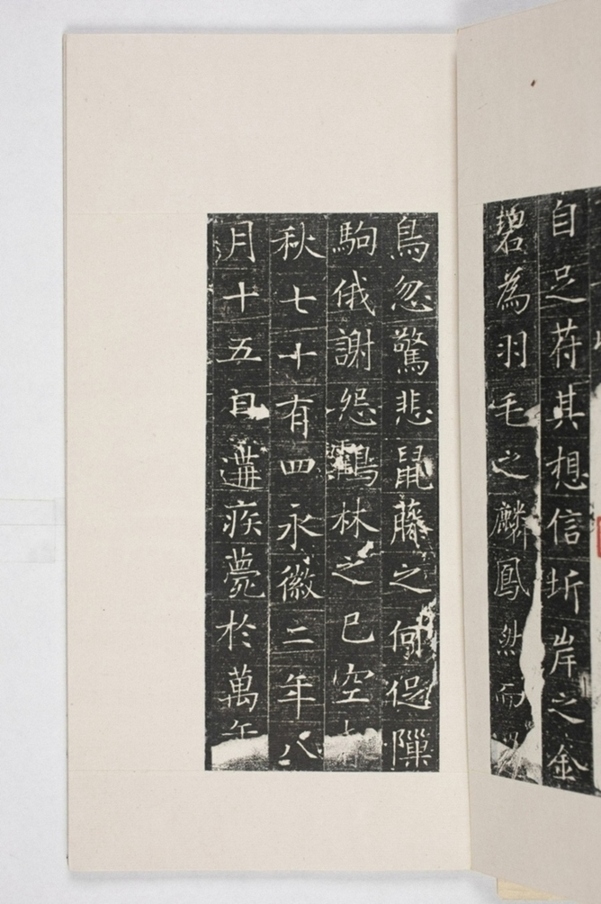 自足苻其想信圻岸之金
碧為羽毛之麟鳳然而
鳥忽驚悲鼠藤之何促隟
駒俄謝怨鶴林之已空
秋七十有四永徽二年八
月十五日遘疾薨於萬年